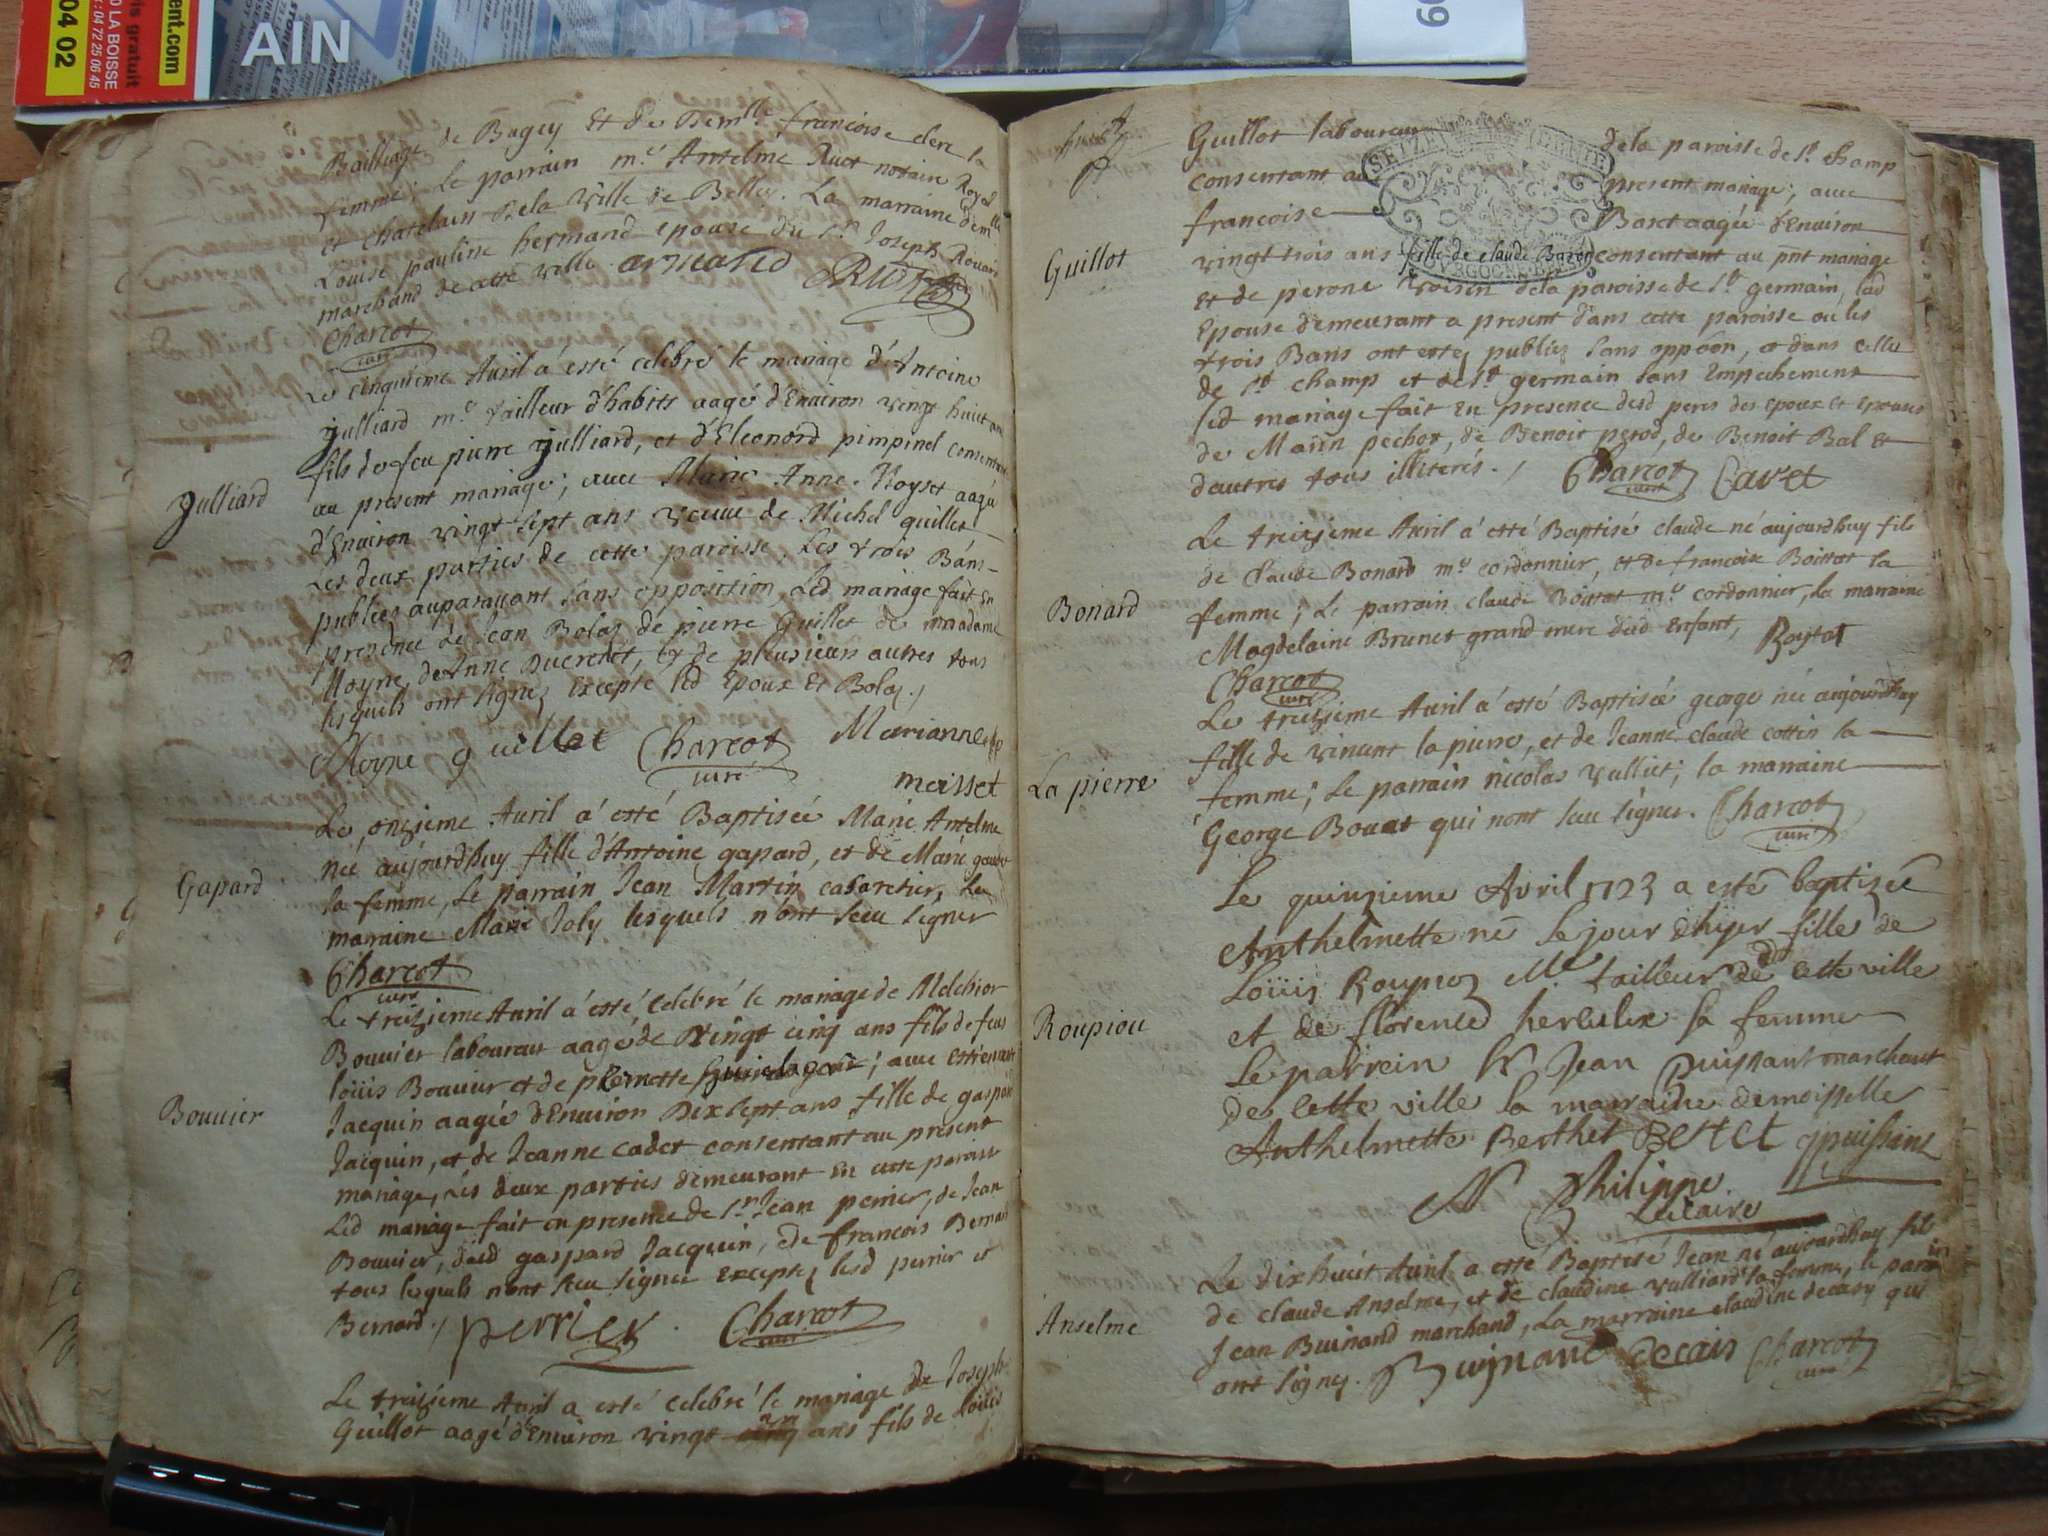 AIN
is gratuit
ent.com
04 02
0 LA BOISSE
: 04 72 25 06 45
09
Bailliage de Bagey Et de Demlle francoise clerc sa
femme; Le parrain me. Antelme Ruet notaire Royal
et chatelain dela Ville de Belley. La marraine demlle
Louise pauline hermand epouse du Sr. Joseph
marchand de cette ville. armand
Charcot
curé
Le cinquieme Avril à esté celebré le mariage d'Antoine
Julliard me tailleur d'habits aagé d'Environ vingt huict ans
fils de feu pierre Julliard, et d'Eleonord pimpinel consentant
au present mariage; avec Marie Anne Royset aagée
d'Environ vingt sept ans veuve de Michel guillet
Les deux parties de cette paroisse, Les trois Bans
publiez auparavant sans opposition, Led mariage fait En
presence de Jean Bolaz, de pierre Guillet de madame
Moyne, de Anne, Et de plusieurs autres tous
lesquels ont signez Excepté led Epoux Et Bolaz./
Julliard
Moyne guillet Charcot Marianne
curé
moisset
Le onzieme Avril à esté Baptisée Marie Antelme
née aujourdhuy fille d'Antoine gapard, et de Marie
la femme, Le parrain Jean Martin cabaretier, La
marraine Marie Joly lesquels n'ont sceu signer
Gapard
Charcot
curé
Le treizieme Avril à esté celebré le mariage de Melchior
Bouvier laboureur aagé de vingt cinq ans fils de feus
loüis Bouvier et de pernette; avec Estiennette
Jacquin aagée d'Environ Dix sept ans fille de gaspard
Jacquin, et de Jeanne cadet consentant au present
mariage, Les deux parties demeurant En cette paroisse
Led mariage fait en presence de Sr. Jean perrier, de Jean
Bouvier, dud gaspard Jacquin, & de francois Bernard
tous lesquels n'ont sceu signer Exceptez lesd perrier et
Bernard./ perrier Charcot
curé
Bouvier
Le treizieme Avril a esté celebré le mariage de Joseph
Guillot aagé d'Environ vingt cinq ans fils de loüis
Guillot laboureur dela paroisse de St. champ
consentant au present mariage; avec
francoise Baret aagée d'Environ
vingt trois ans fille de claude Baret consentant au pnt mariage
Et de perone voisin dela paroisse de St. germain, lad
Epouse demeurant a present dans cette paroisse ou les
trois Bans ont estez publiez sans oppoon, & dans celles
de St. champ et de St. germain sans Empechement
led mariage fait En presence desd peres des epoux et epouses
de Marin pechot, de Benoit perod, de Benoit Bal Et
dautres tous illiterés./ Charcot Cavet
curé
Guillot
SEIZE
BOURGOGNE
Le treizieme Avril à esté Baptisé claude né aujourdhuy fils
de Claude Bonard me cordonnier, et de francoise Boittat la
femme; Le parrain claude Boittat me cordonnier, La marraine
Magdelaine Brunet grand mere dud Enfant, Boytat
Bonard
Charcot
curé
Le treizieme Avril à esté Baptisée george née aujourdhuy
fille de vincent lapierre, et de Jeanne claude cottin la
femme; Le parrain nicolas vulliet; la marraine
George Bouat qui nont sceu signer. Charcot
curé
La pierre
Le quinzieme Avril 1723 a esté baptizée
Anthelmette né le jour dhyer fille de
Loüis Roupioz Me. tailleur de cette ville
et de florence herculix sa femme
Le parrein Sr Jean Puissant marchant
de cette ville la marraine demoisselle
Anthelmette Berthet Bertet Jpuissant
Roupiou
Philippe
Vicaire
Le dixhuict Avril a esté Baptisé Jean né aujourdhuy fils
de claude Anselme, et de claudine vulliard sa femme, le parrin
Jean Buinand marchand, La marraine claudine decasy qui
ont signez. Buynand decais Charcot
curé
Anselme